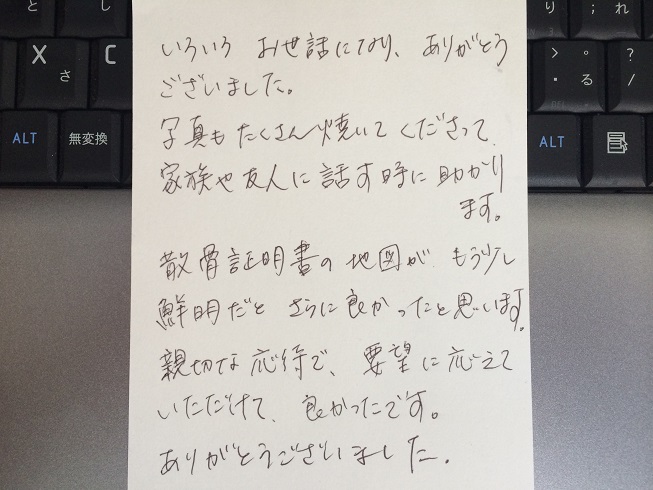 いろいろ お世話になり、ありがとう
ございました。
写真もたくさん焼いてくださって、
家族や友人に話す時に助かり
ます。
散骨証明書の地図が、もう少し
鮮明だと さらに良かったと思います。
親切な応待で、要望に応えて
いただけて、良かったです。
ありがとうございました。
と
し
X
さ
C
ALT
無変換
り
;
れ
>
。
?
.
る
/
ALT